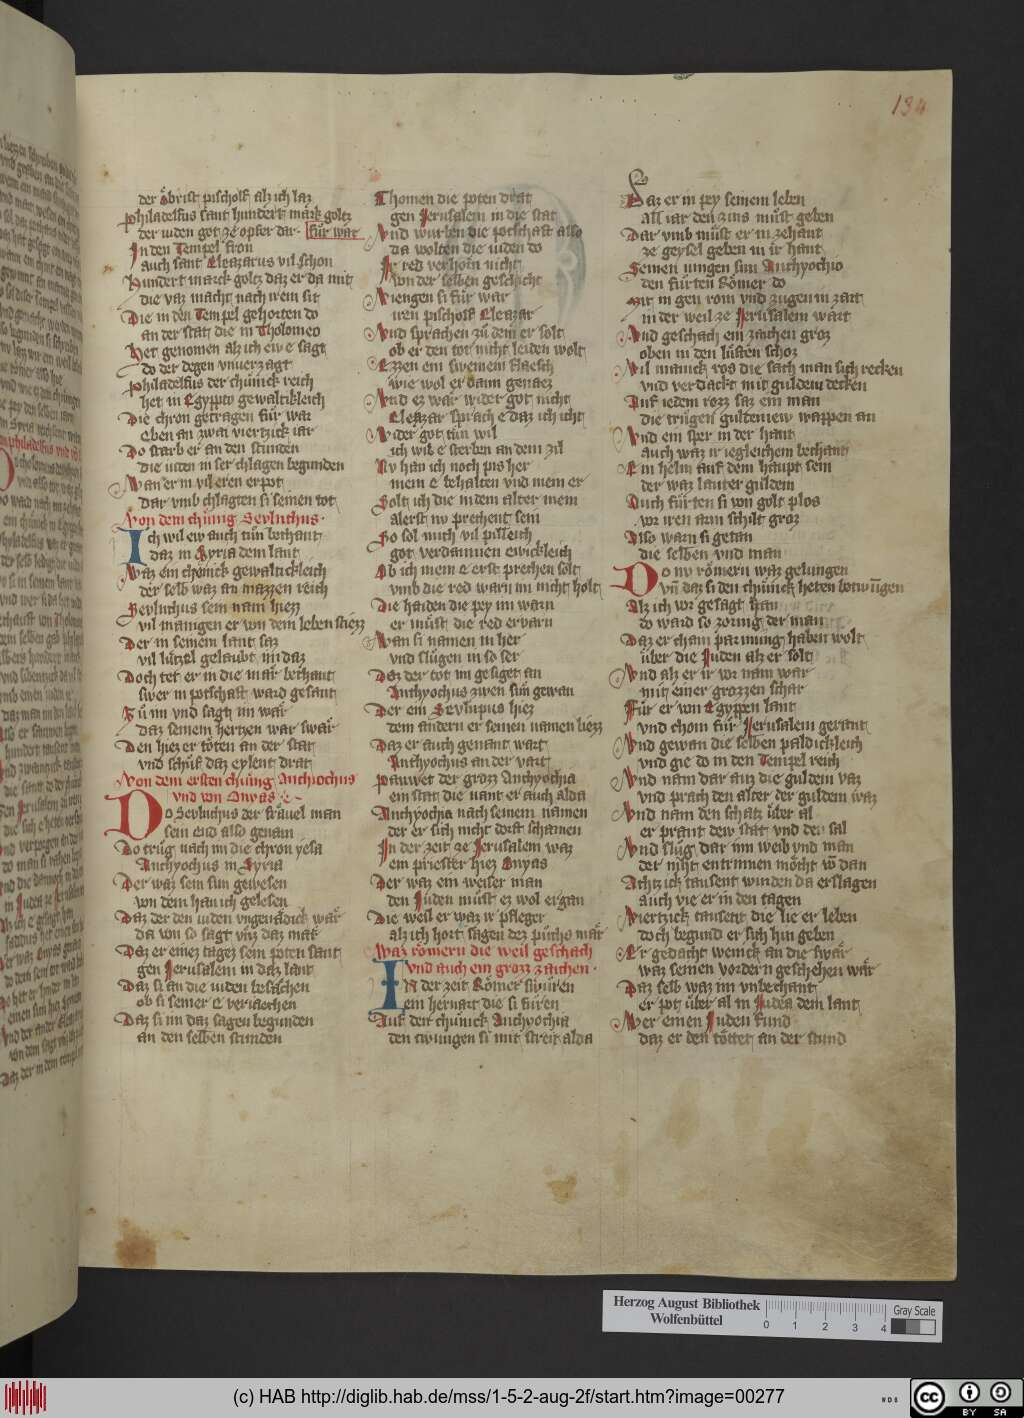 134
der öbrist pischolf alz ich laz
Philadelfus sant hundert mark goltz
der iuden got ze opfer dar · für war
In den Tempel fron
auch sant Eleazarus vil schon
hundert marck goltz daz er da mit
die vaz macht nach irem sit
Die in den Tempel gehorten do
an der stat die in Tholomeo
Het genomen alz ich ew e sagt
do der degen vnuerzagt
Philadelfus der chünick reich
het in Egyppto gewaltikleich
Die chron getragen für war
Eben an zwai viertzick iar
Do starb er an den stunden
die iuden in ser chlagen begunden
Wan er in vil eren erpot
dar vmb chlagten si seinen tot
Von dem chünig Seyluchus ·
Ich wil ew auch tün bechant
daz in Syria dem lant
Waz ein chünick gewaltickleich
der selb waz an mazzen reich
Seyluchus sein nam hiez
vil manigen er von dem leben stiezz
Der in seinem lant saz
vil lützel gelaubt im daz
Doch tet er in die mär bechant
swer in potschaft ward gesant
Zü im vnd sagt im mär
daz seinem hertzen war swär
Den hiez er töten an der stat
vnd schüf daz eylent drat
Von dem ersten chüng Anchyochus
vnd von Onyas
Do Seyluchus der fräuel man
sein end also genam
Do trüg nach im die chron ysa
Anchyochus in Syria
Der waz sein sun gewesen
von dem han ich gelesen
Daz der den iuden vngenädick wär
da von so sagt vnz daz mär
Daz er einez tagez sein poten sant
gen Jerusalem in daz lant
Daz si an die iuden besächen
ob si seiner e veriaechen
Daz si im daz sagen begunden
an den selben stunden
Chomen die poten drat
gen Jerusalem in die stat
Vnd wurben die potschaft also
da wolten die iuden do
Ir red verhorn nicht
von der selben geschicht
Viengen si für war
iren pischolf Eleazar
Vnd sprachen zü dem er solt
ob er den tot nicht leiden wolt
Ezzen ein sweinein flaesch
wie wol er dann genaez
Vnd ez wär wider got nicht
Eleazar sprach e daz ich icht
Wider got tün wil
ich wil e sterben an dem zil
Nv han ich noch pis her
mein e behalten vnd mein er
Solt ich die in dem alter mein
alerst nv prechent sein
So sol mich vil pilleich
got verdamnen ewickleich
Ob ich mein e erst prechen solt
vmb die red warn im nicht holt
Die haiden die pey im warn
er müst die red ervarn
Wan si namen in her
vnd slügen in so ser
Dez der tot im gesiget an
Anthyochus zwen sün gewan
Der ein Seylupus hiez
dem andern er seinen namen liezz
Daz er auch genant wart
Anthyochus an der vart
Pauwet der grozz Anchyochia
ein stat die nant er auch alda
Anchyochia nach seinem namen
der er sich nicht dorft schamen
In der zeit ze Jerusalem waz
ein priester hiez Onyas
Der waz ein weiser man
den Juden müst ez wol ergan
Die weil er waz ir pfleger
alz ich hort sagen dez püchs mär
Waz römern die weil geschach
vnd auch ein grozz zaichen ·
In der zeit Römer swüren
ein heruart die si füren
Auf den chünick Anchyochia
den twungen si mit streit alda
Daz er in pey seinem leben
all iar den zins müst geben
Dar vmb müst er in zehant
ze geysel geben in ir hant
Seinen iungen sun Anthyochio
den fürten Römer do
Mit in gen rom vnd zugen in zart
in der weil ze Jerusalem wart
Vnd geschach ein zaichen groz
oben in den lüften schoz
Vil manick ros die sach man sich recken
vnd verdackt mit guldein decken
Auf iedem rozz saz ein man
die trügen gulteniew wappen an
Vnd ein sper in der hant
auch waz ir iegleichem bechant
Ein helm auf dem haupt sein
der waz lauter guldein
Auch fürten si von golt plos
vor iren arm schilt groz
Also warn si getan
die selben vnd man
Do nv römern waz gelungen
vnd daz si den chünick heten betwungen
Alz ich vor gesagt han
do ward so zornig der man
Daz er cham parmung haben wolt
über die Juden alz er solt
Vnd alz er ir vor nam war
mit einer grozzen schar
Für er von Egyppen lant
vnd chom für Jerusalem gerant
Vnd gewan die selben paldickleich
vnd gie do in den Tempel reich
Vnd nam dar auz die guldein vaz
vnd prach den alter der guldein waz
Vnd nam den schatz über al
er prant dew stat vnd dew sal
Vnd slüg dar inn weib vnd man
der niht entrinnen möcht von dan
Achtzick tausent wurden da erslagen
auch vie er in den tagen
Viertzick tausent die lie er leben
doch begund er sich hin geben
Er gedacht wenick an die swär
waz seinen vordern geschehen wär
Daz selb waz im vnbechant
er pot über al in Judea dem lant
Wer einen Juden fund
daz er den töttet an der stund
Herzog August Bibliothek
Wolfenbüttel
0 1 2 3 4
Gray Scale
(c) HAB http://diglib.hab.de/mss/1-5-2-aug-2f/start.htm?image=00277
WDB
cc BY SA